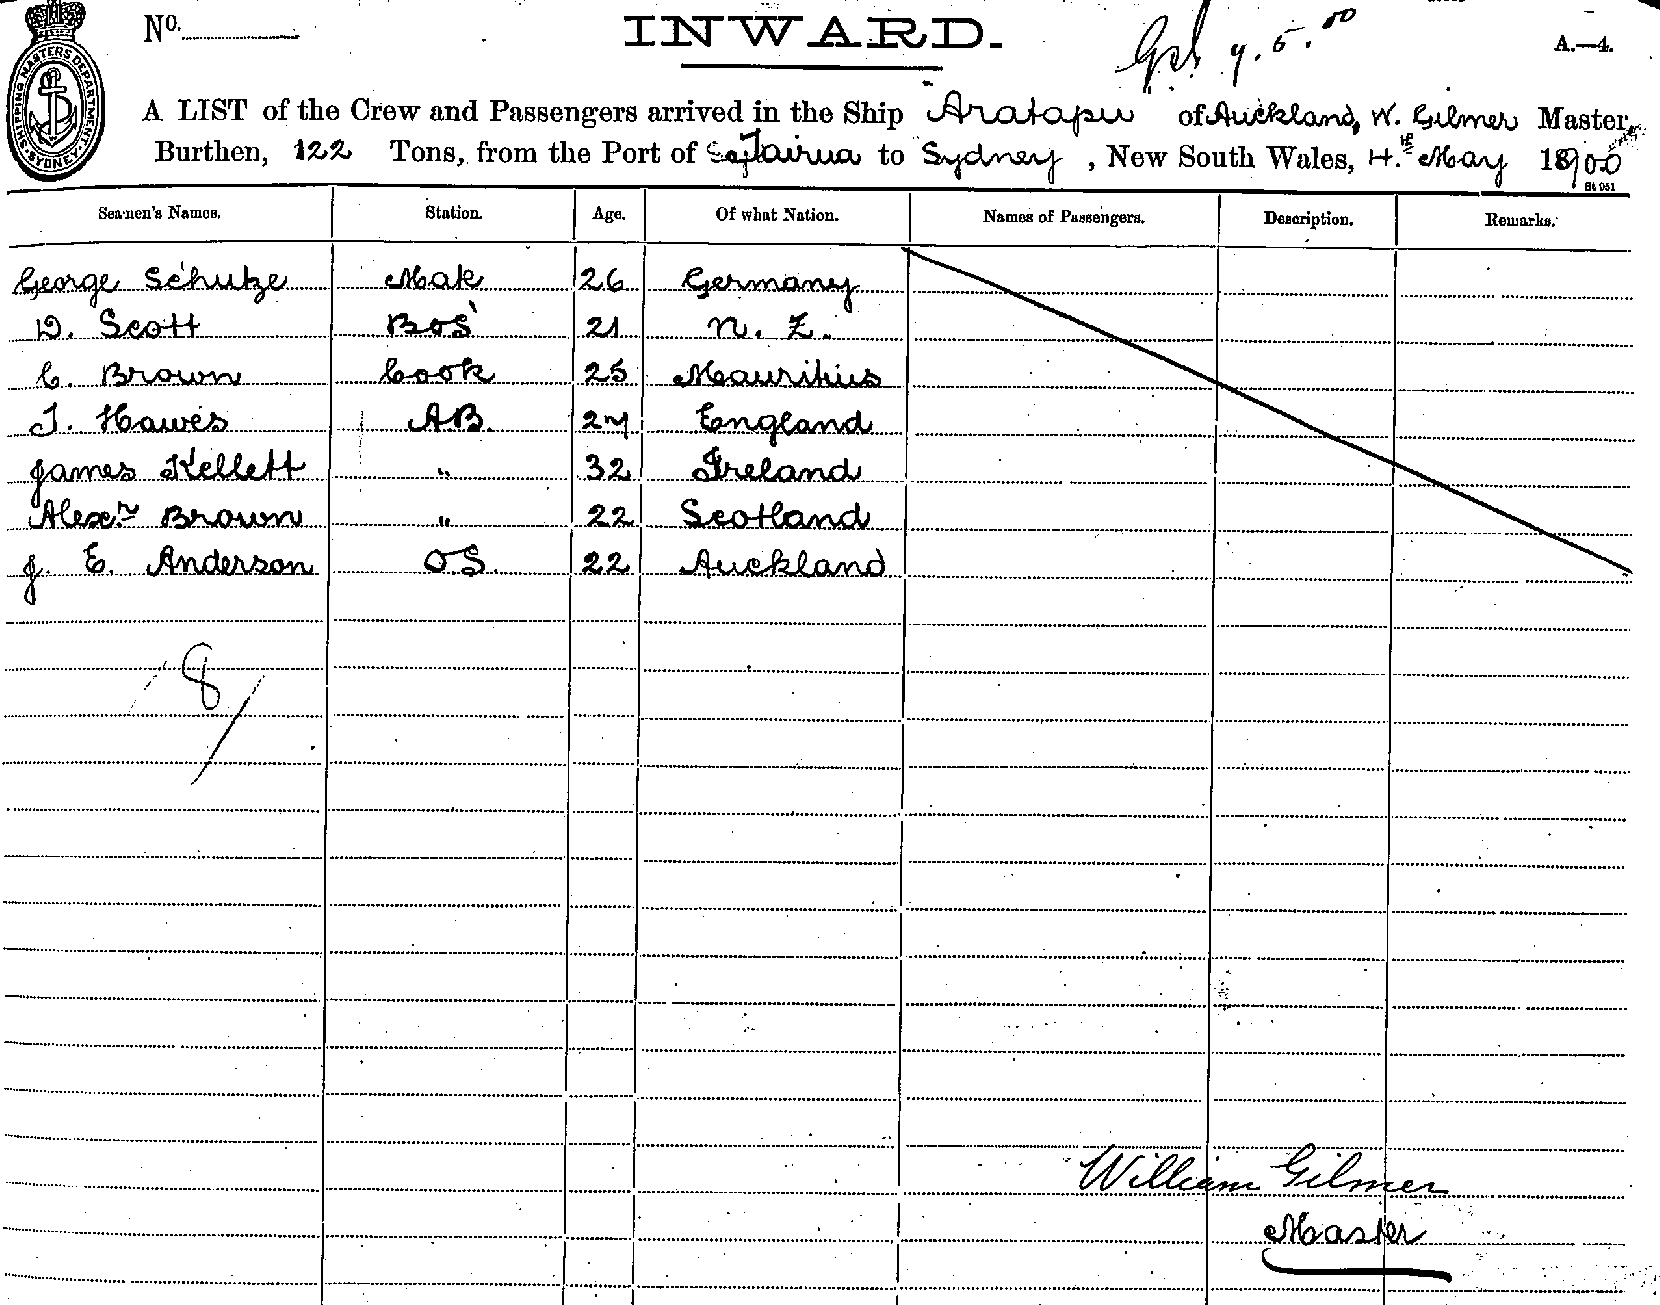 No.
INWARD.
9.5.00
A.—4.
SHIPPING MASTERS DEPARTMENT. SYDNEY.
A LIST of the Crew and Passengers arrived in the Ship Aratapu of Auckland, W. Gilmer Master,
Burthen, 122 Tons, from the Port of Tairua to Sydney, New South Wales, 4.th May 1900
St 951
Seamen's Names. Station. Age. Of what Nation. Names of Passengers. Description. Remarks.
George Schulze Mate 26 Germany
D. Scott BOS 21 N. Z.
C. Brown Cook 25 Mauritius
T. Hawes AB. 27 England
James Kellett " 32 Ireland
Alexr Brown " 22 Scotland
J. E. Anderson O.S. 22 Auckland
8
William Gilmer
Master